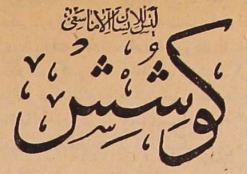 لیس للانسان الا ما سعی
كوشش